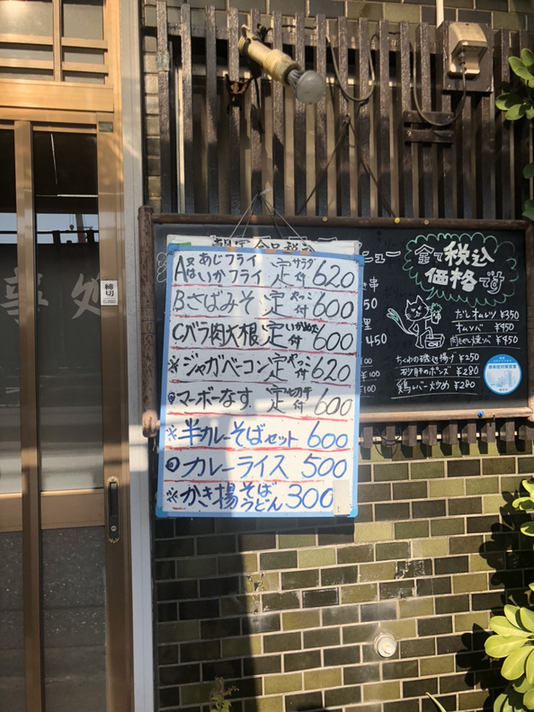 A あじフライ 定 サラダ付 620
又は いかフライ
Bさばみそ 定 付 600
Cバラ肉大根 定 付 600
※ジャガベーコン 定 付 620
マーボーなす 定 付 600
※半カレーそばセット 600
カレーライス 500
※かき揚そばうどん 300
ニュー
串
50
450
¥100
¥100
全て税込
価格です
だしオムレツ ¥350
オムソバ ¥450
¥450
ちくわの磯辺揚げ ¥250
砂肝のポンズ ¥280
鶏レバー炒め ¥280
事処
締切